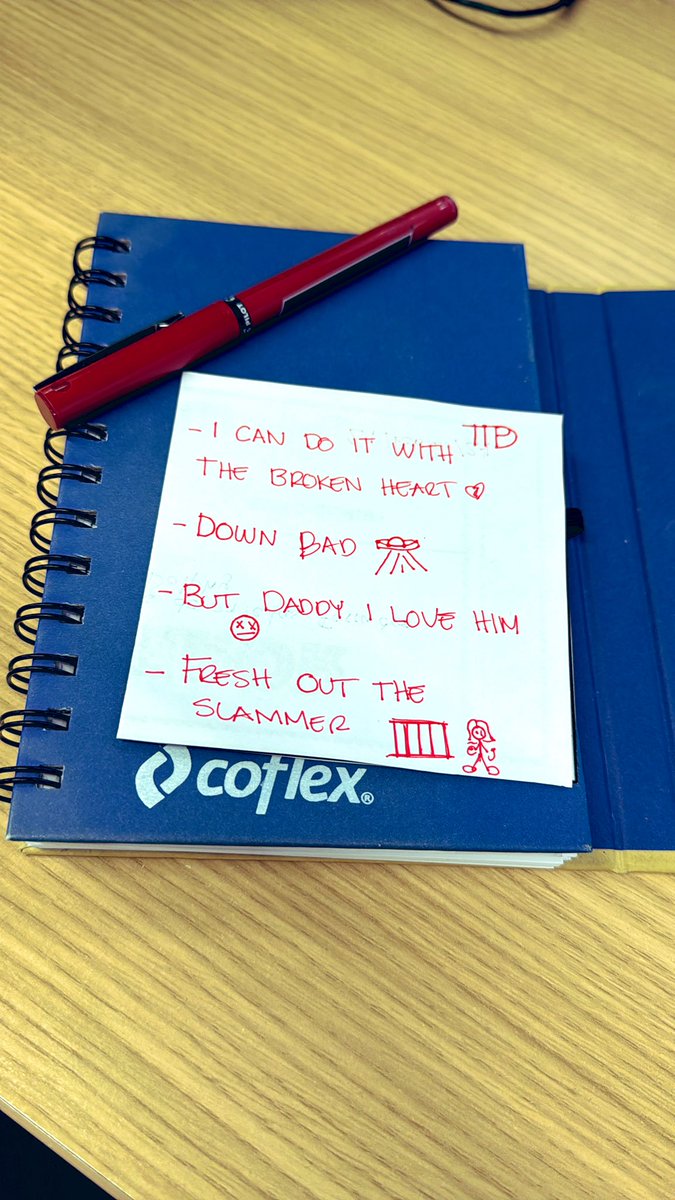 PILOT
TTPD
- I CAN DO IT WITH
THE BROKEN HEART
- DOWN BAD
- BUT DADDY I LOVE HIM
- FRESH OUT THE
SLAMMER
coflex®